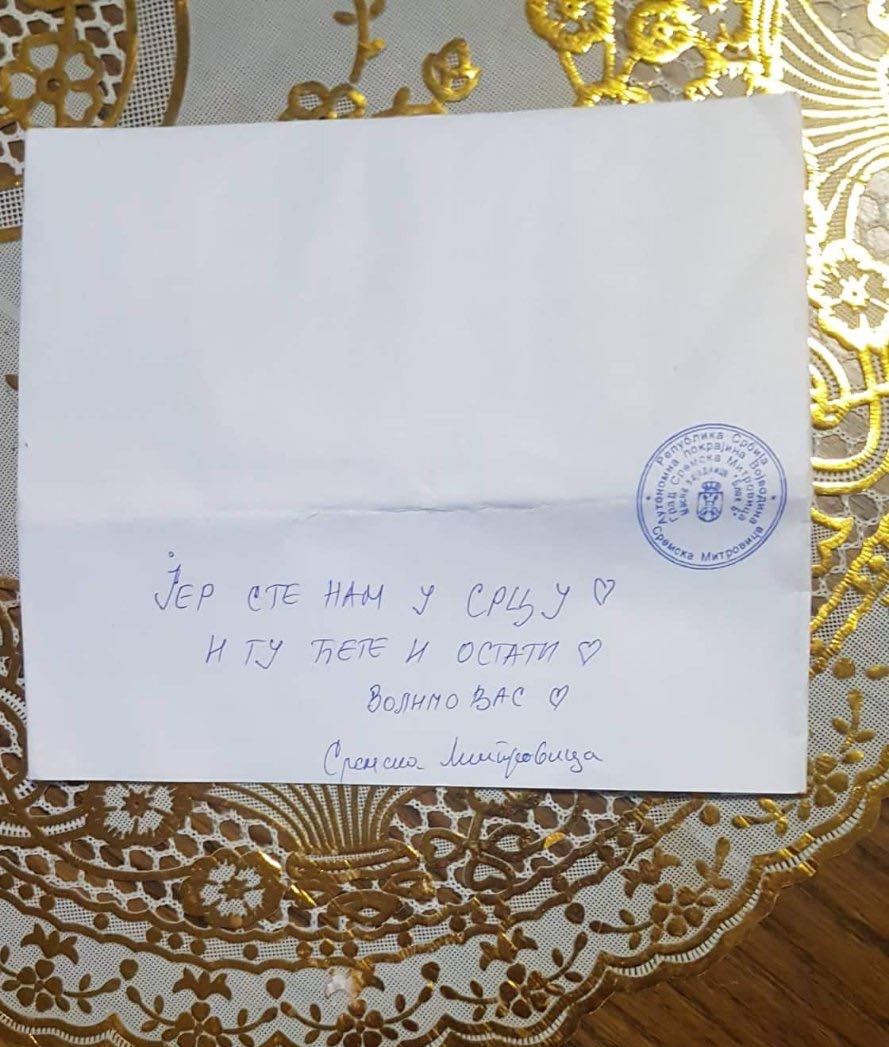 Република Србија
Аутономна покрајина Војводина
Град Сремска Митровица
Сремска Митровица
ЈЕР СТЕ НАМ У СРЦУ ♡
И ТУ ЋЕТЕ И ОСТАТИ ♡
ВОЛИМО ВАС ♡
Сремска Митровица